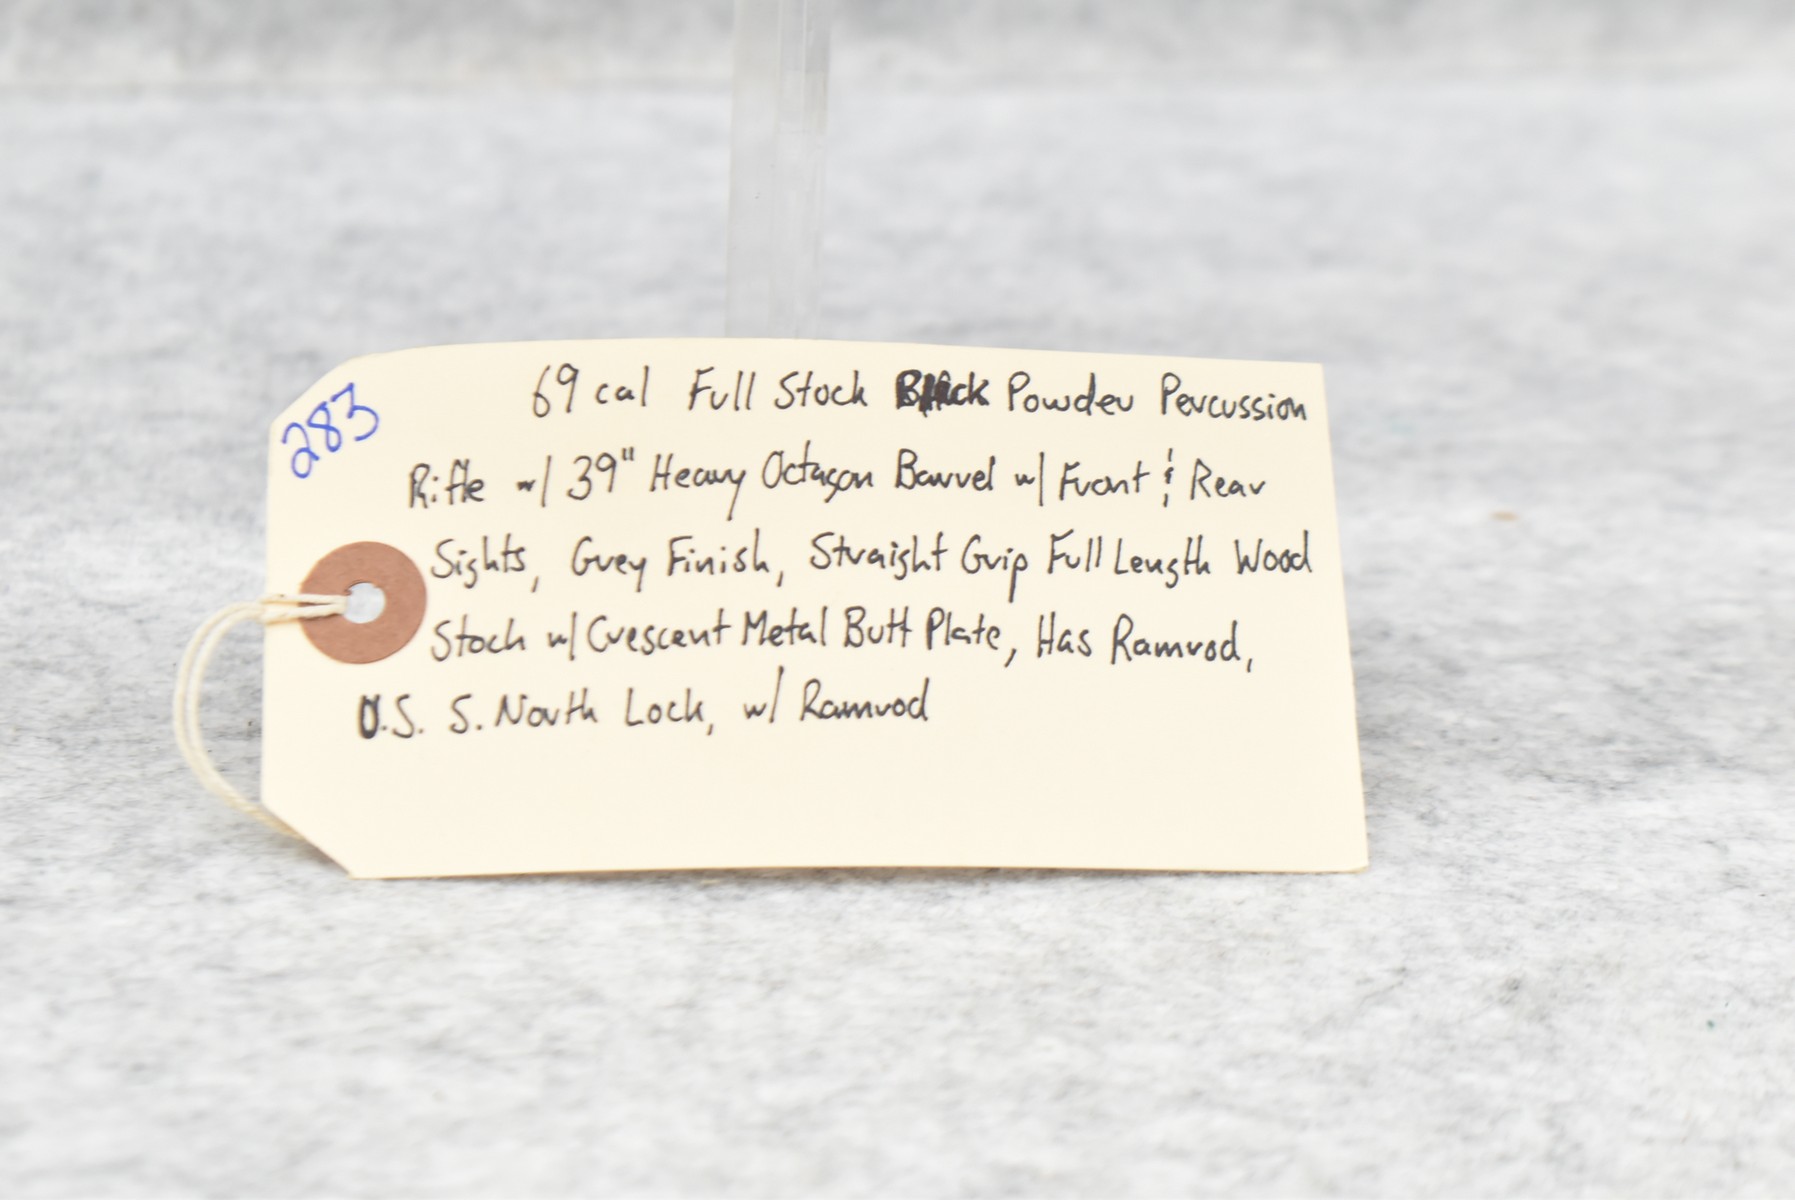 283
69 cal Full Stock Black Powder Percussion
Rifle w/ 39" Heavy Octagon Barrel w/ Front & Rear
Sights, Grey Finish, Straight Grip Full Length Wood
Stock w/ Crescent Metal Butt Plate, Has Ramrod,
U.S. S. North Lock, w/ Ramrod